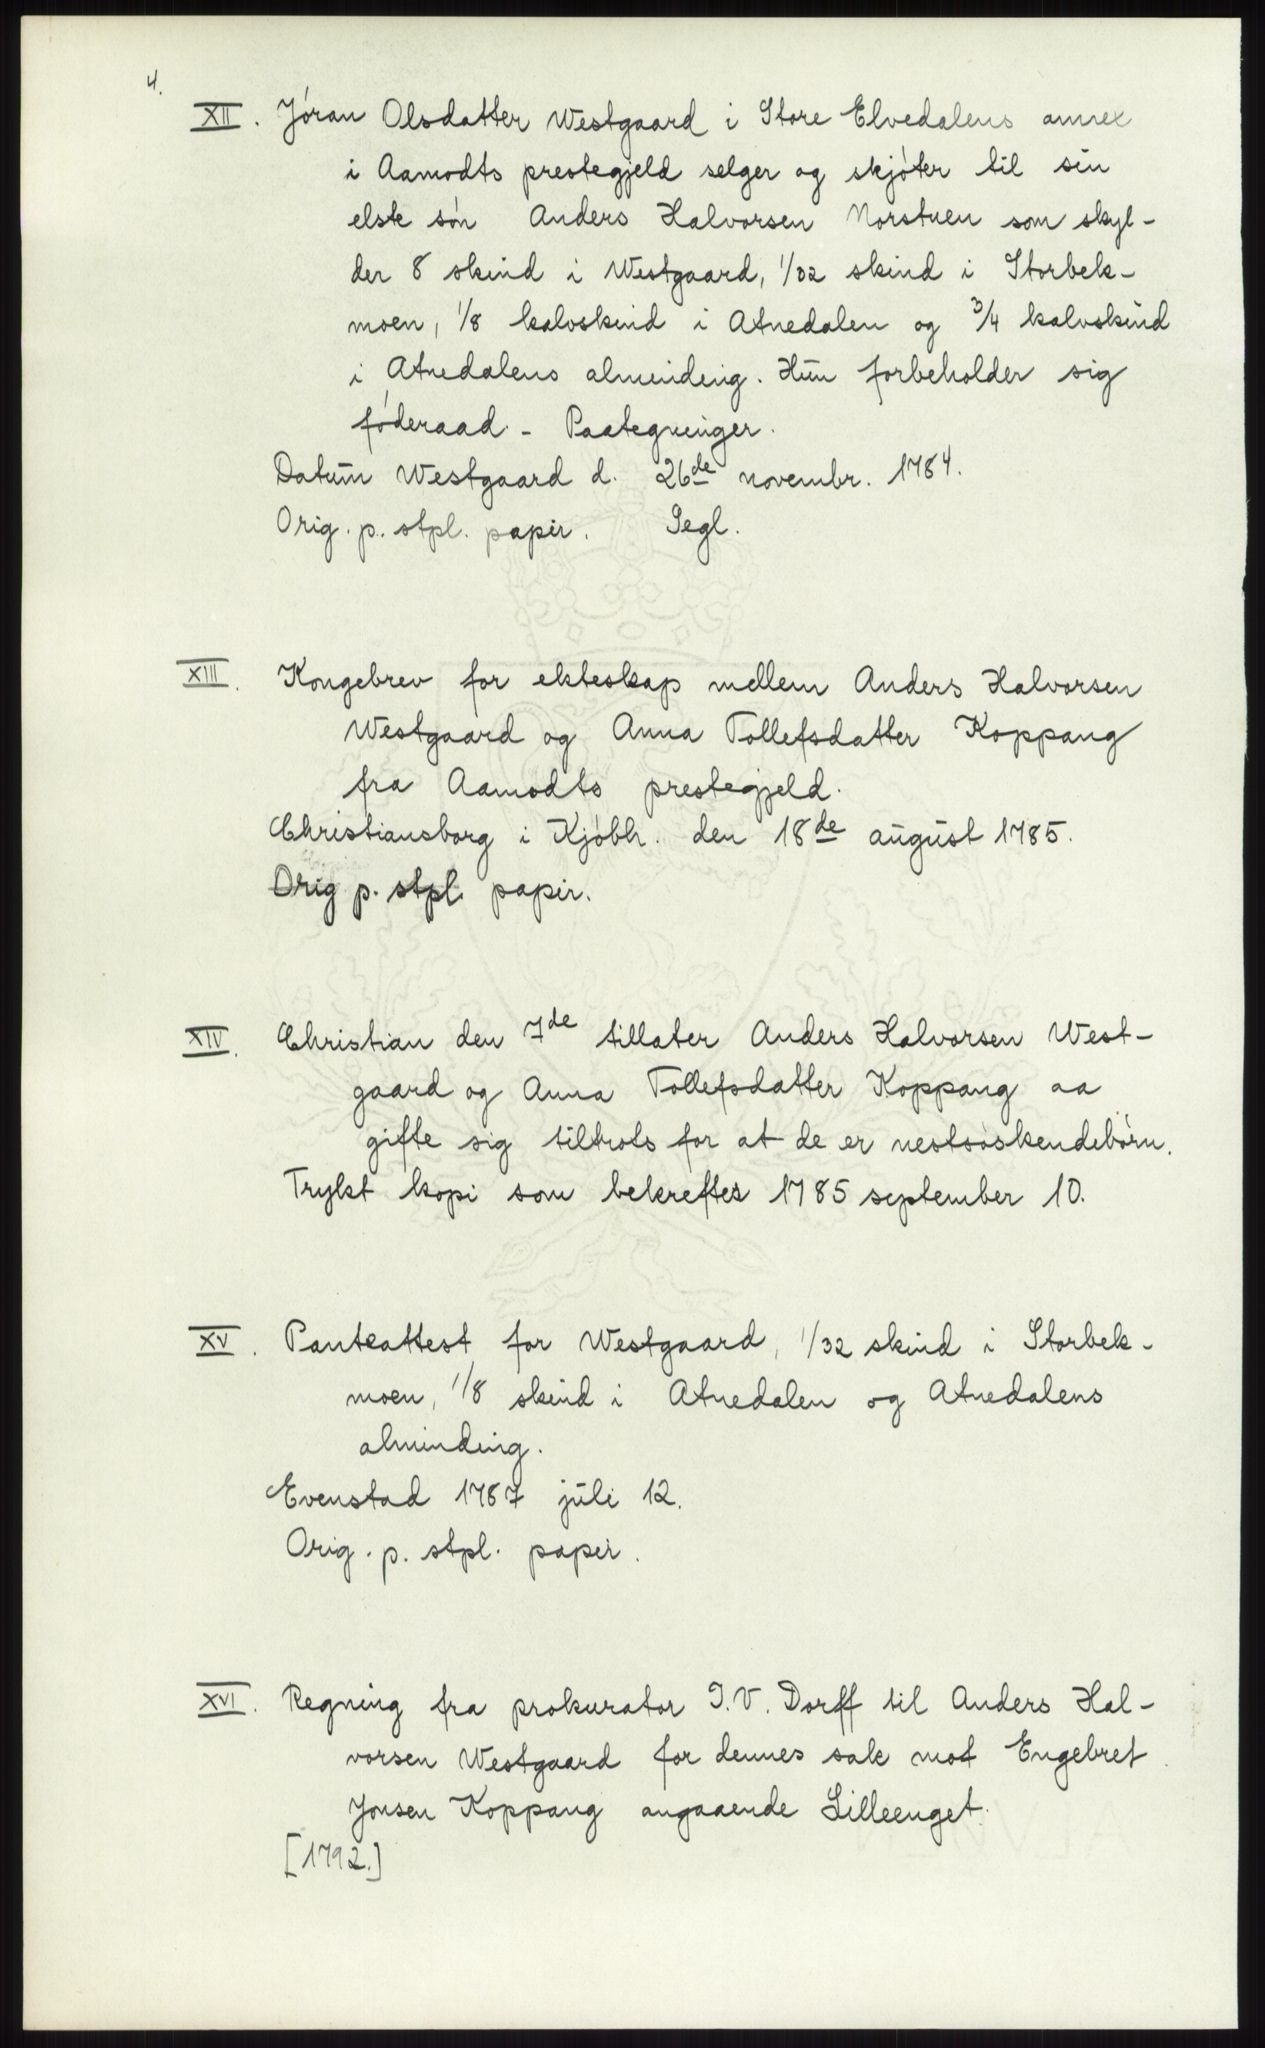 4.
XII. Jóran Olsdatter Westgaard i Store Elvedalens annex
i Aamodts prestegjeld selger og skjóter til sin
elste són Anders Halvorsen Norstuen som skyl-
der 8 skind i Westgaard, 1/32 skind i Storbek-
moen, 1/8 kalvskind i Atnedalen og 3/4 kalvskind
i Atnedalens alminding. Hun forbeholder sig
fóderaad. - Paategninger.
Datum Westgaard d. 26de novembr. 1784.
Orig. p. stpl. papir. Segl.
XIII. Kongebrev for ekteskap mellem Anders Halvorsen
Westgaard og Anna Tollefsdatter Koppang
fra Aamodts prestegjeld.
Christiansborg i Kjóbh. den 18de august 1785.
Orig p. stpl. papir.
XIV. Christian den 7de tillater Anders Halvorsen West-
gaard og Anna Tollefsdatter Koppang aa
gifte sig tiltrots for at de er nestsóskendebórn.
Trykt kopi som bekreftes 1785 september 10.
XV. Panteattest for Westgaard, 1/32 skind i Storbek-
moen, 1/8 skind i Atnedalen og Atnedalens
alminding.
Evenstad 1787 juli 12.
Orig. p. stpl. papir.
XVI. Regning fra prokurator I. V. Dorff til Anders Hal-
vorsen Westgaard for dennes sak mot Engebret
Jonsen Koppang angaaende Lilleenget.
[1792.]